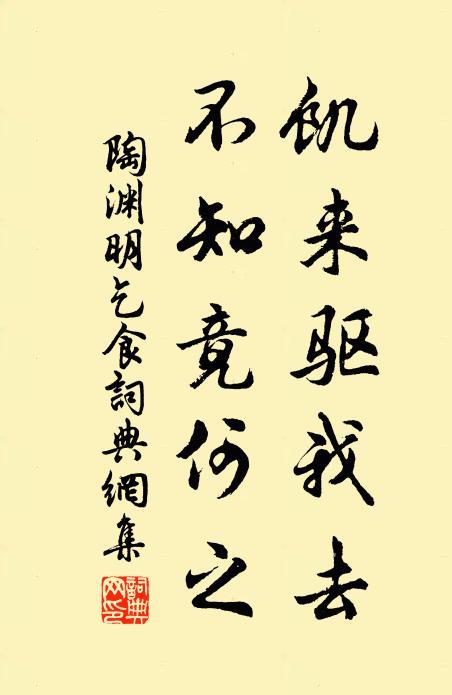 飢来驱我去
不知竟何之
陶渊明乞食詞典網集
詞典
网印